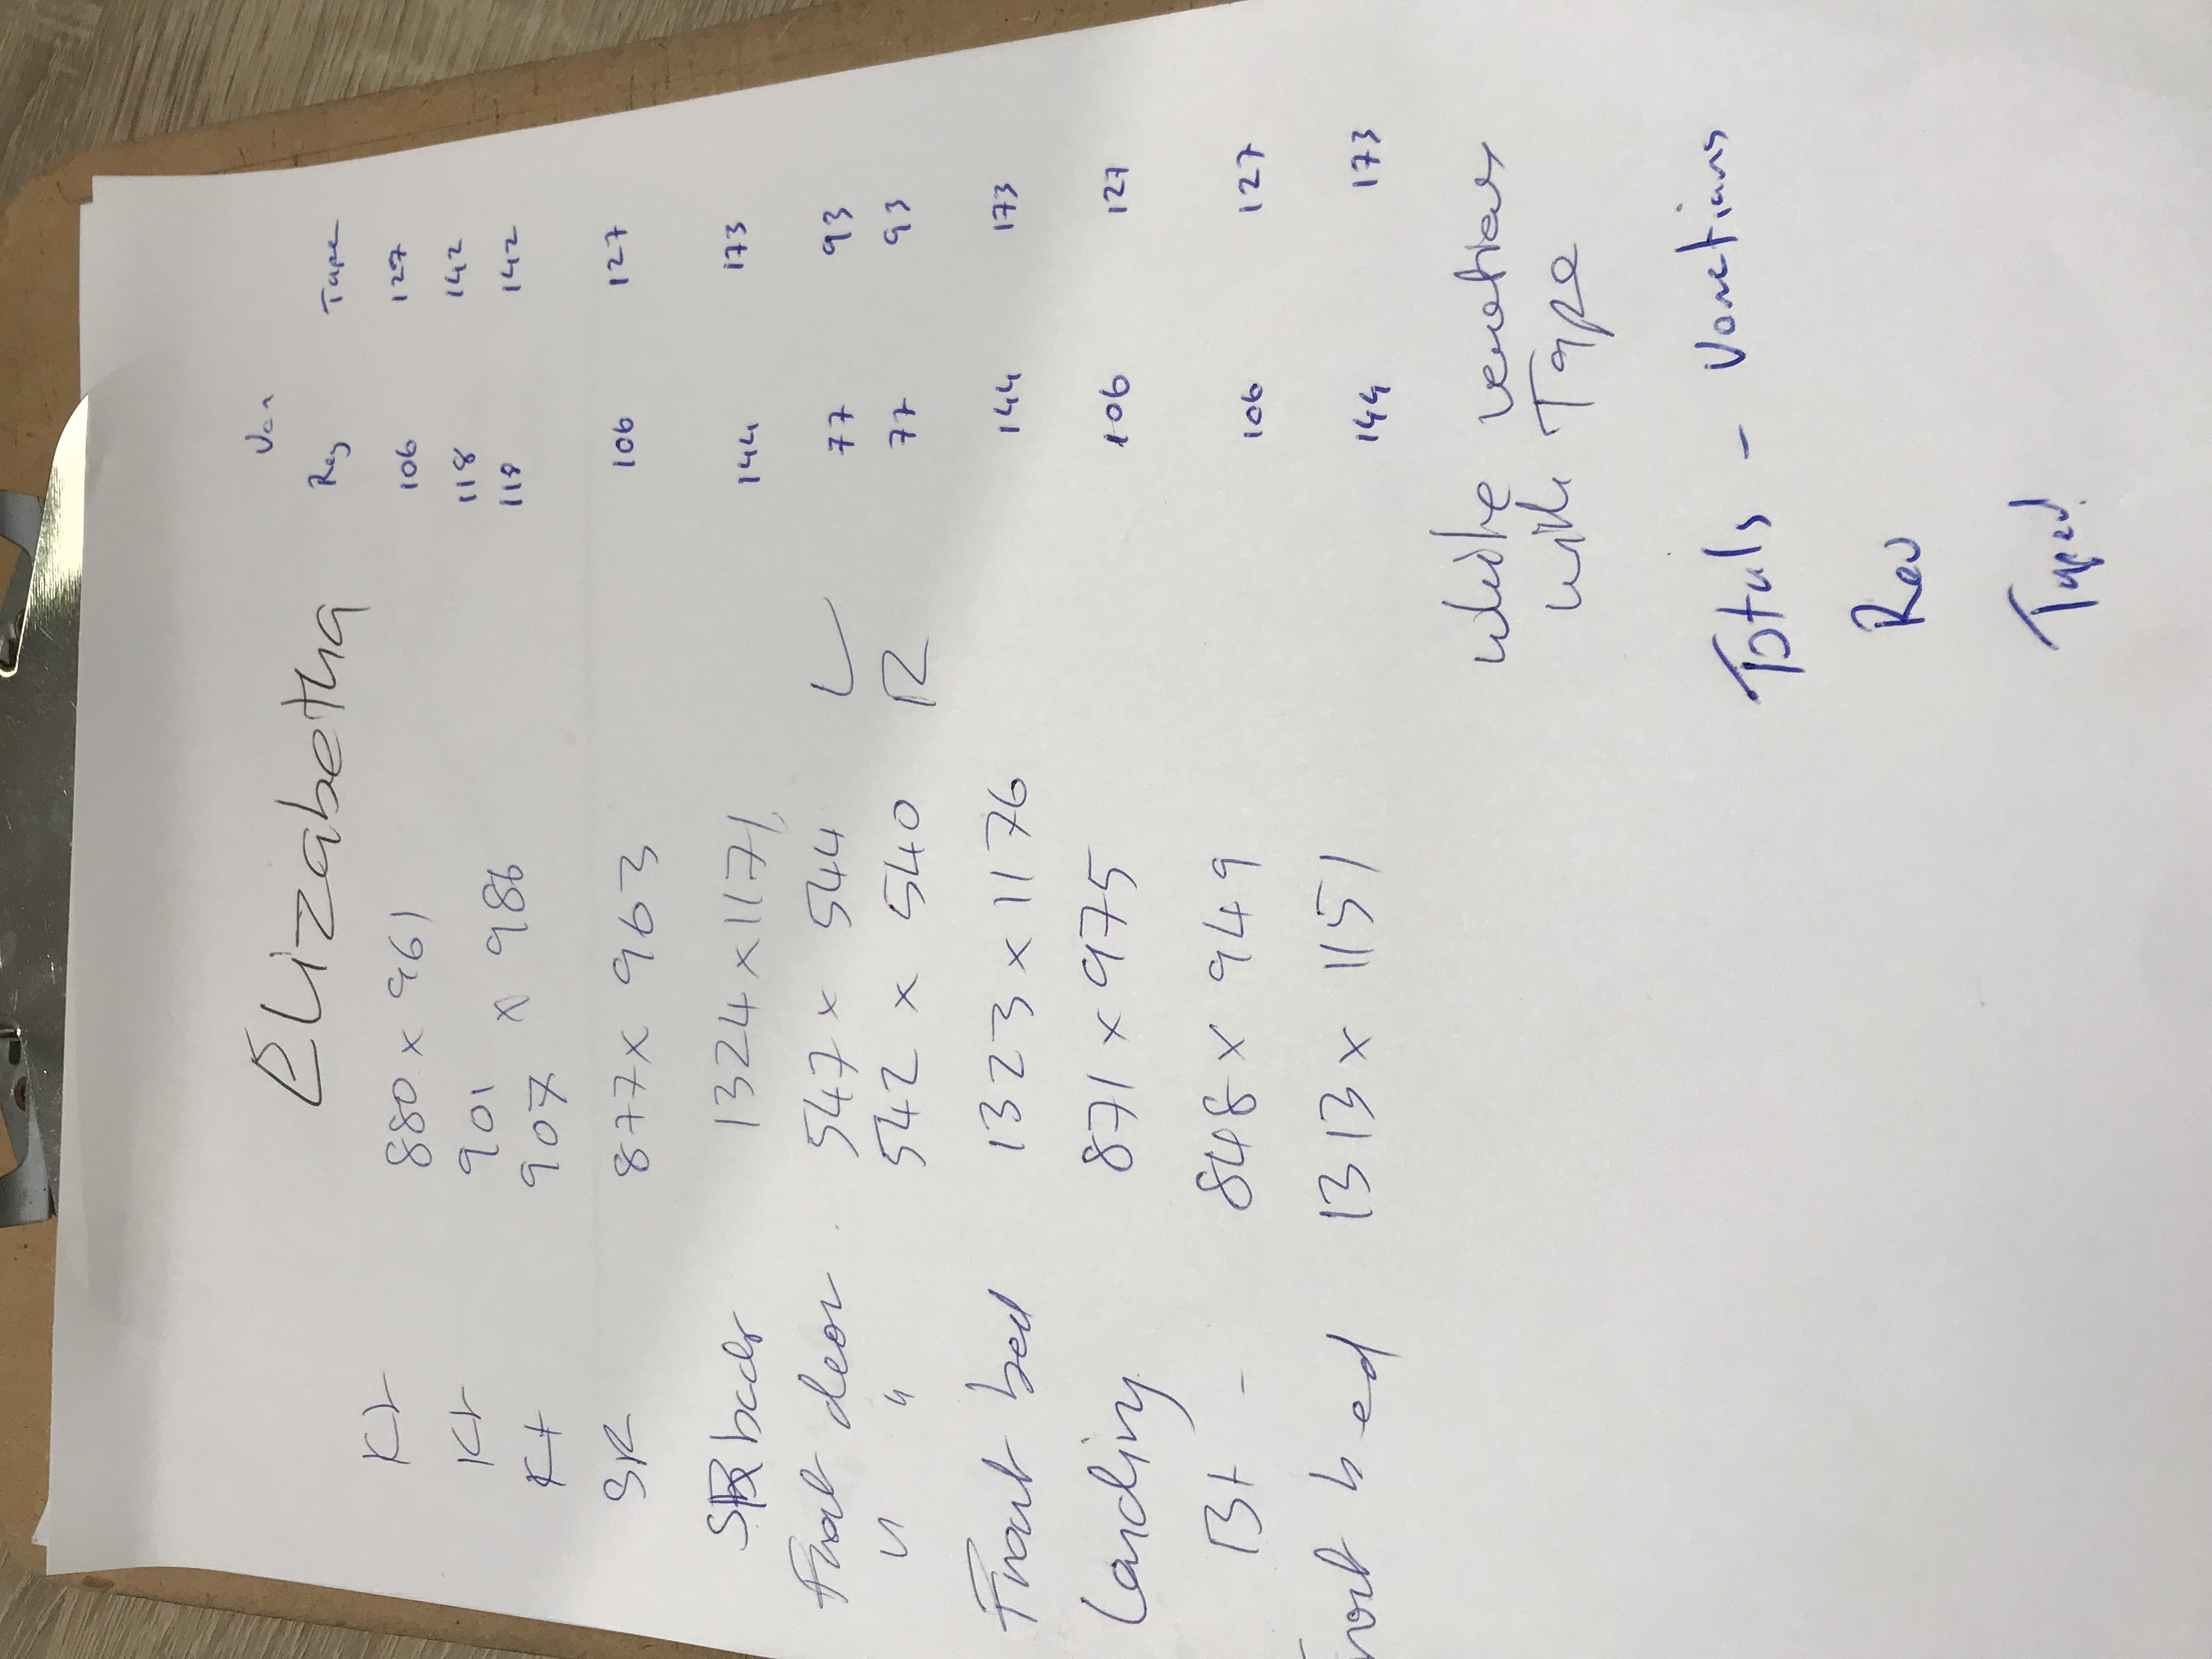 Elizabetha
Ven
Reg Tape
Kt 880 x 961 106 127
Kt 901 118 142
Kt 907 x 986 118 142
SR 877 x 963 106 127
back 1324 x 1171 144 173
Front door 547 x 544 L 77 93
" " 542 x 540 R 77 93
Front bed 1323 x 1176 144 173
Landing 871 x 975 106 127
Bt - 848 x 949 106 127
Front bed 1313 x 1151 144 173
White
with Tape
Totals - Vanetians
Reg
Taped